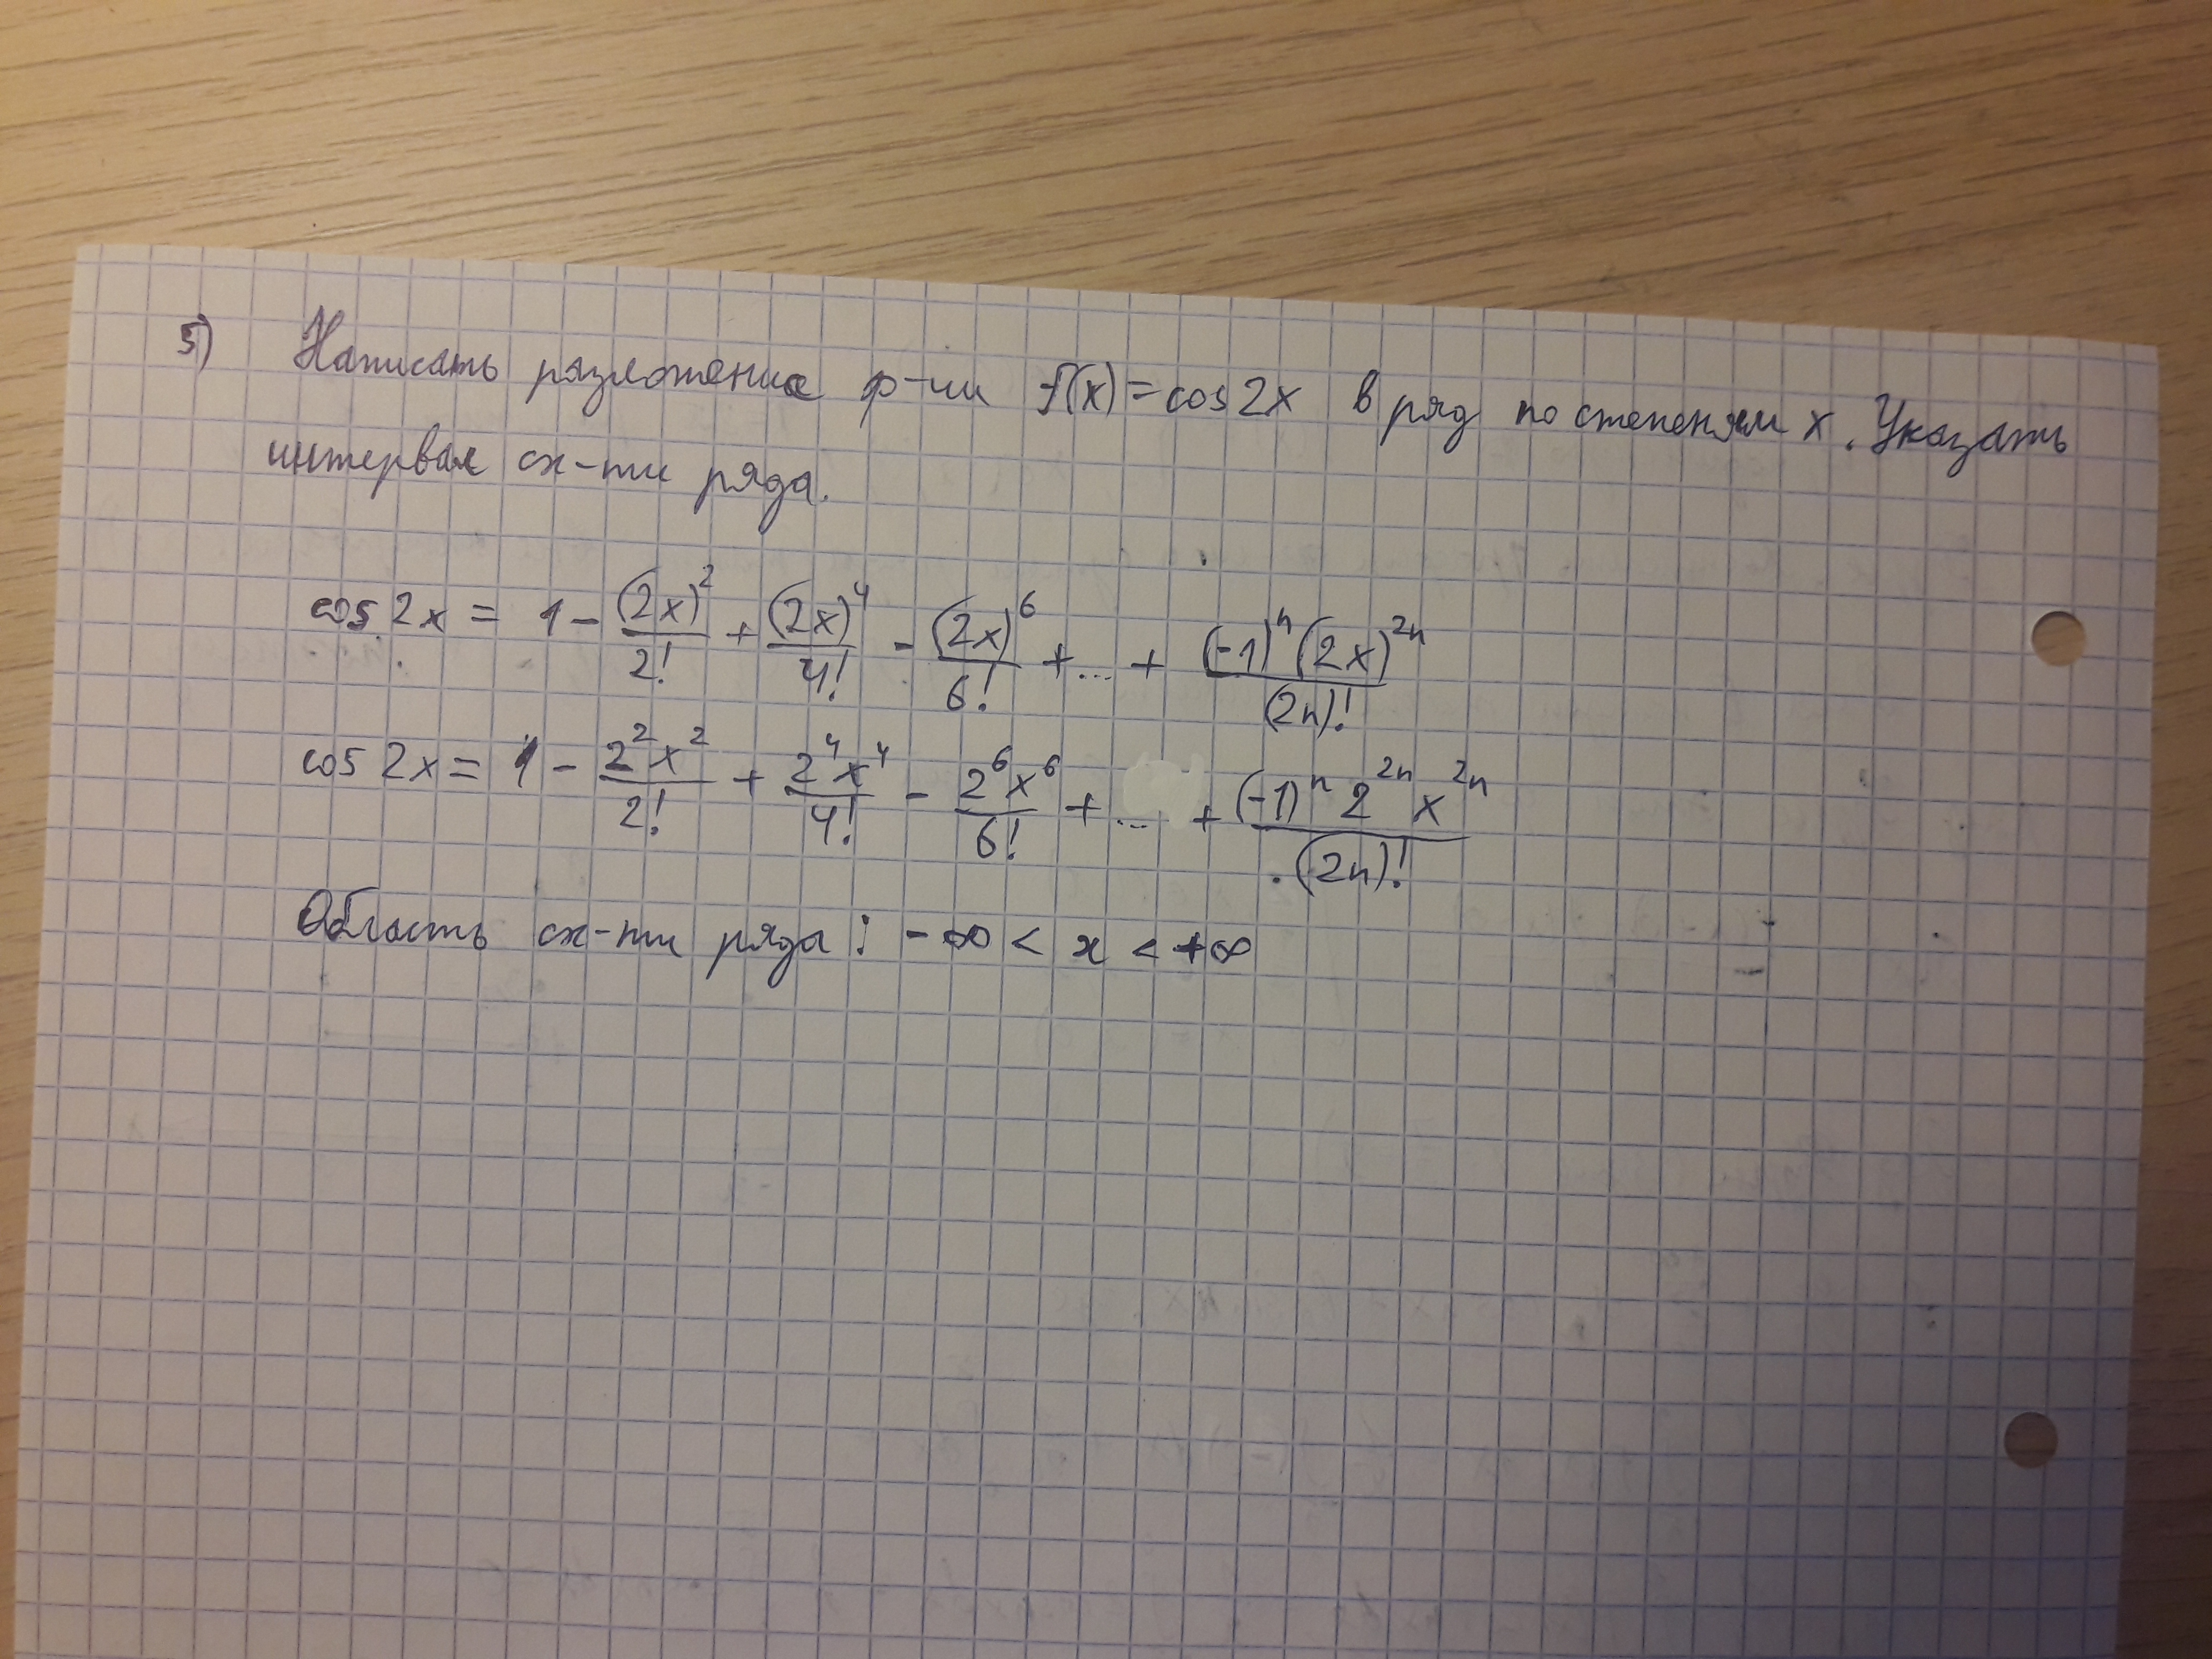 5) Написать разложение ф-ии f(x)=cos2x в ряд по степеням x. Указать
интервал сх-ти ряда.
cos 2x = 1 - (2x)²/2! + (2x)⁴/4! - (2x)⁶/6! + ... + (-1)ⁿ(2x)²ⁿ/(2n)!
cos 2x = 1 - 2²x²/2! + 2⁴x⁴/4! - 2⁶x⁶/6! + ... + (-1)ⁿ2²ⁿx²ⁿ/(2n)!
Область сх-ти ряда: -∞ < x < +∞